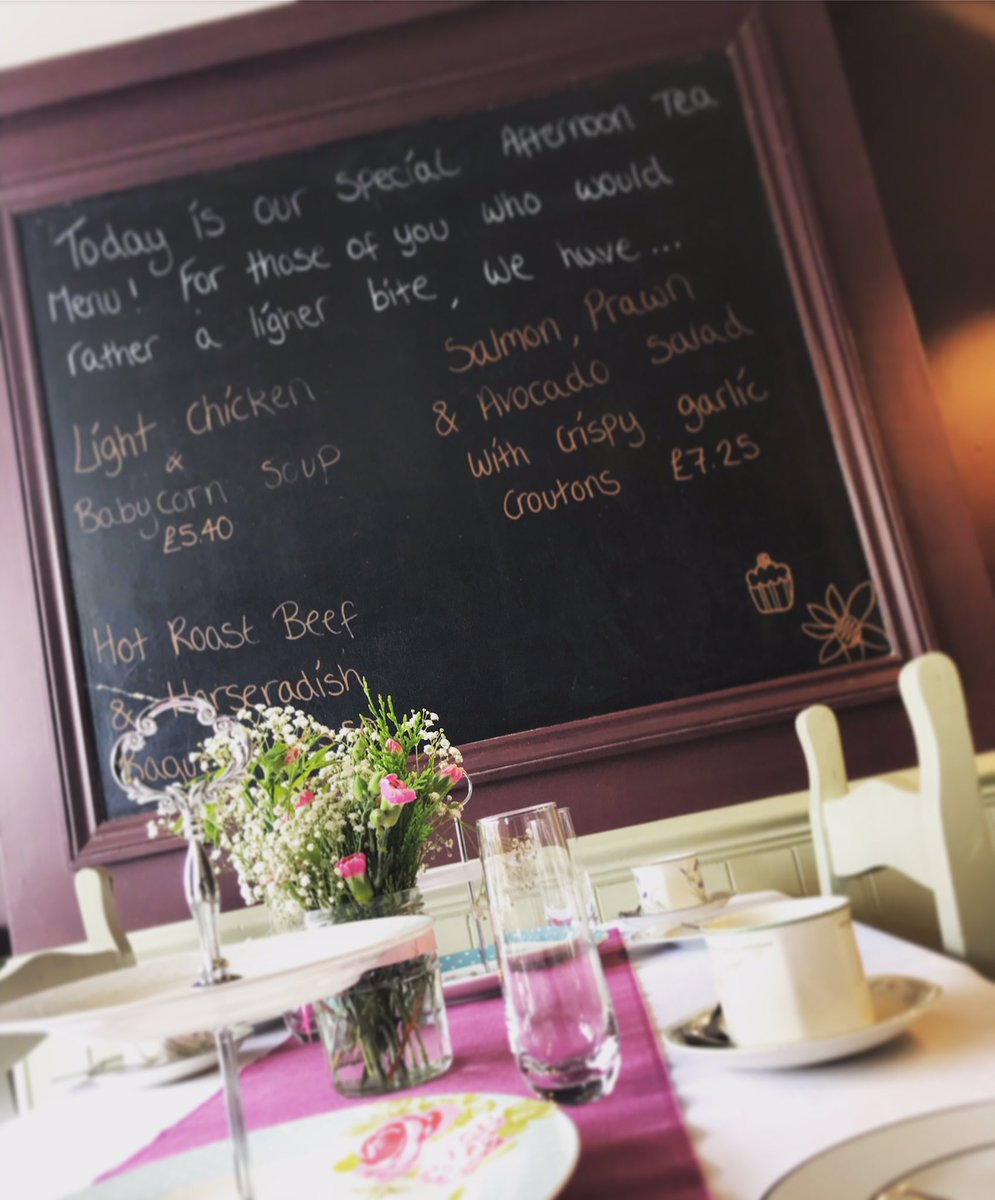 Today is our special Afternoon Tea
Menu! For those of you who would
rather a ligher bite, we have...
Light Chicken
&
Babycorn Soup
£5.40
Hot Roast Beef
& Horseradish
Salmon, Prawn
& Avocado Salad
With Crispy garlic
Croutons £7.25